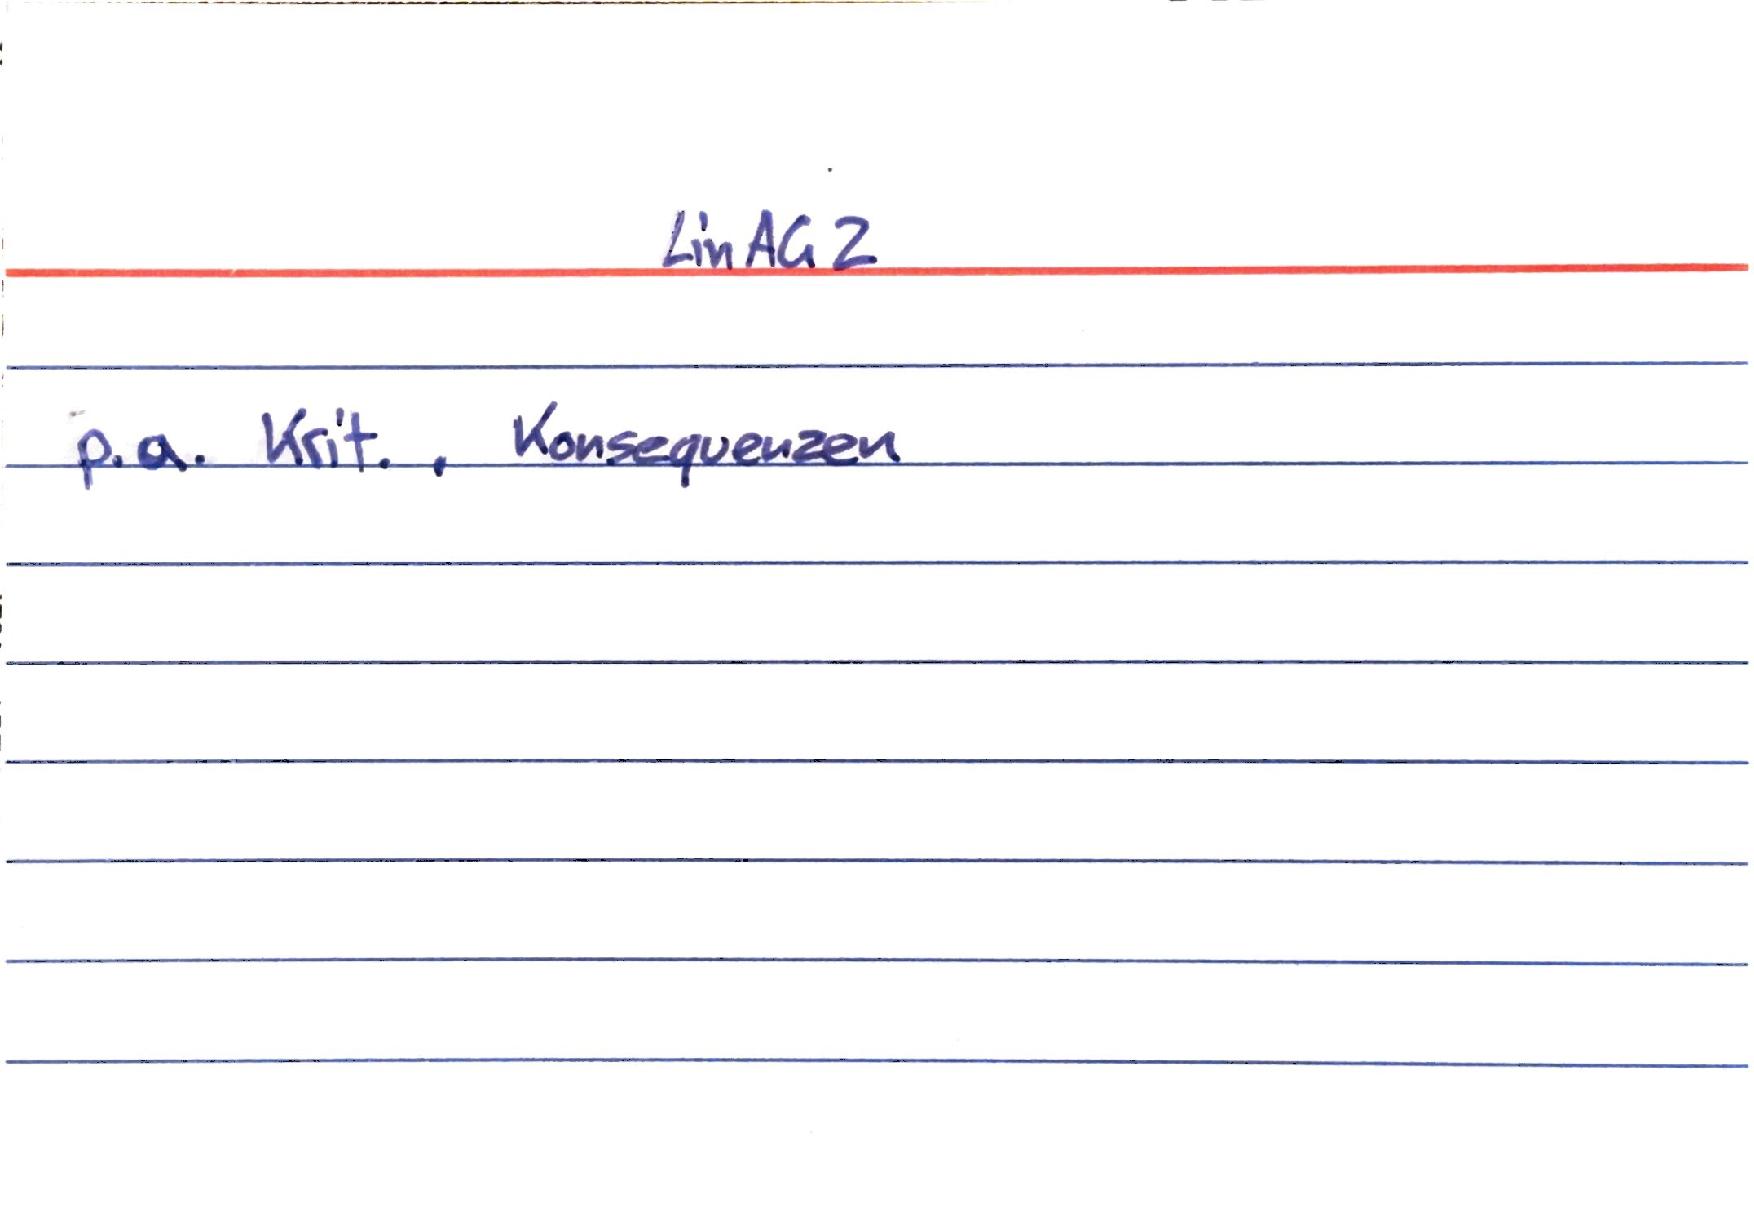 LinAG 2
p.a. Krit. , Konsequenzen